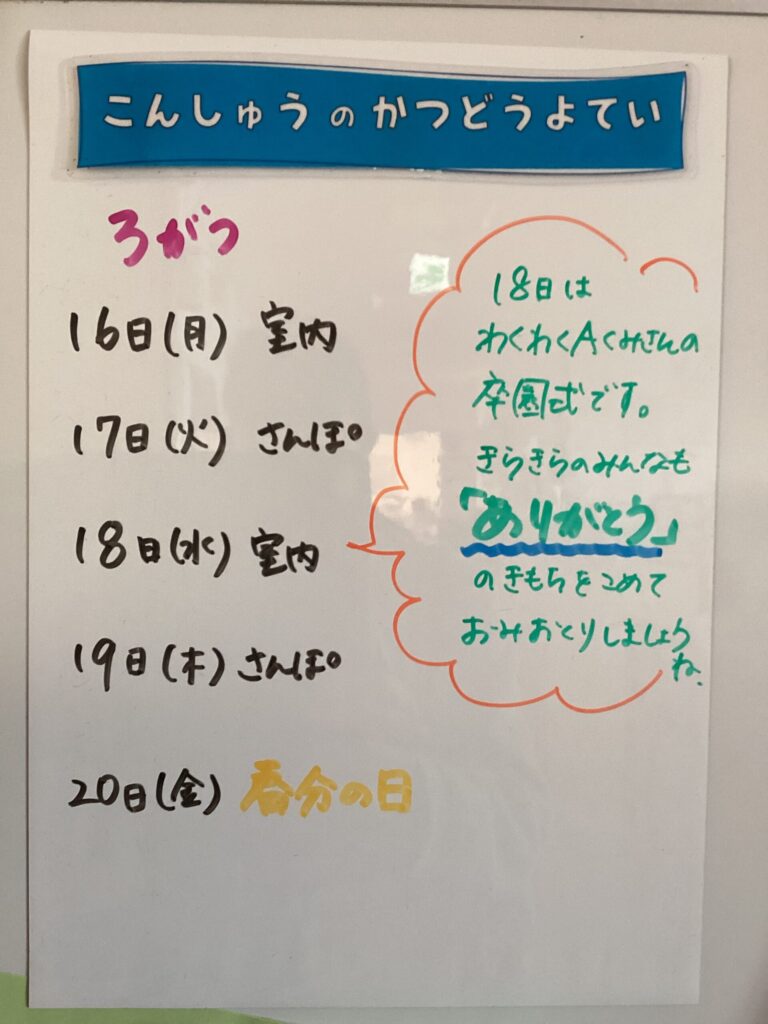 こんしゅうのかつどうよてい
3がつ
16日(月) 室内
17日(火) さんぽ。
18日(水) 室内
19日(木) さんぽ。
20日(金) 春分の日
18日は
わくわくAくみさんの
卒園式です。
きらきらのみんなも
「ありがとう」
のきもちをこめて
おみおくりしましょう
ね。